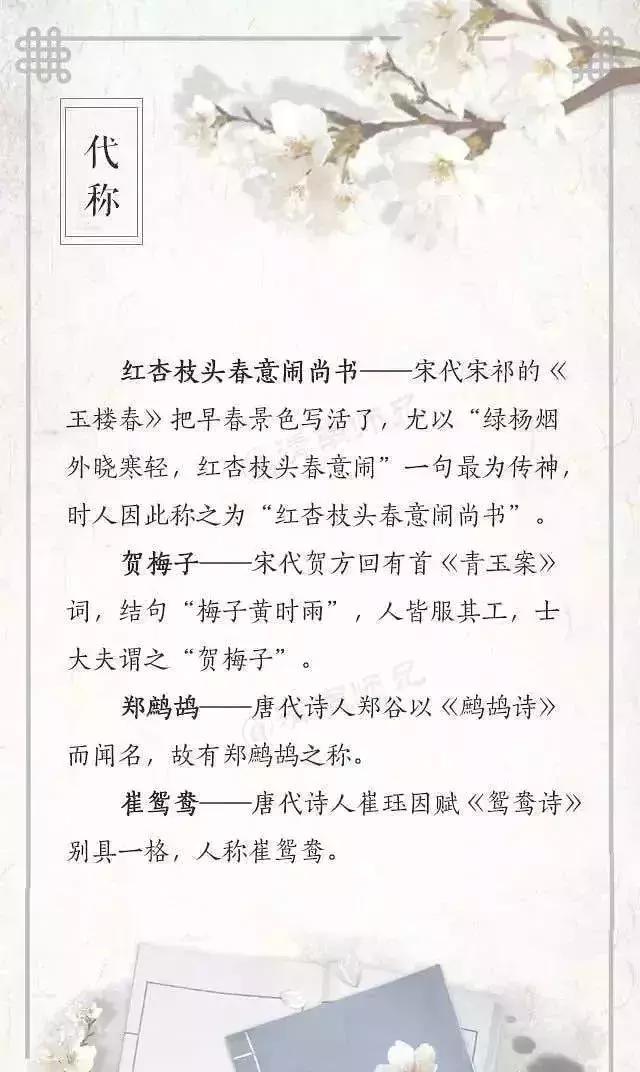 代
称
红杏枝头春意闹尚书——宋代宋祁的《
玉楼春》把早春景色写活了，尤以“绿杨烟
外晓寒轻，红杏枝头春意闹”一句最为传神，
时人因此称之为“红杏枝头春意闹尚书”。
贺梅子——宋代贺方回有首《青玉案》
词，结句“梅子黄时雨”，人皆服其工，士
大夫谓之“贺梅子”。
郑鹧鸪——唐代诗人郑谷以《鹧鸪诗》
而闻名，故有郑鹧鸪之称。
崔鸳鸯——唐代诗人崔珏因赋《鸳鸯诗》
别具一格，人称崔鸳鸯。